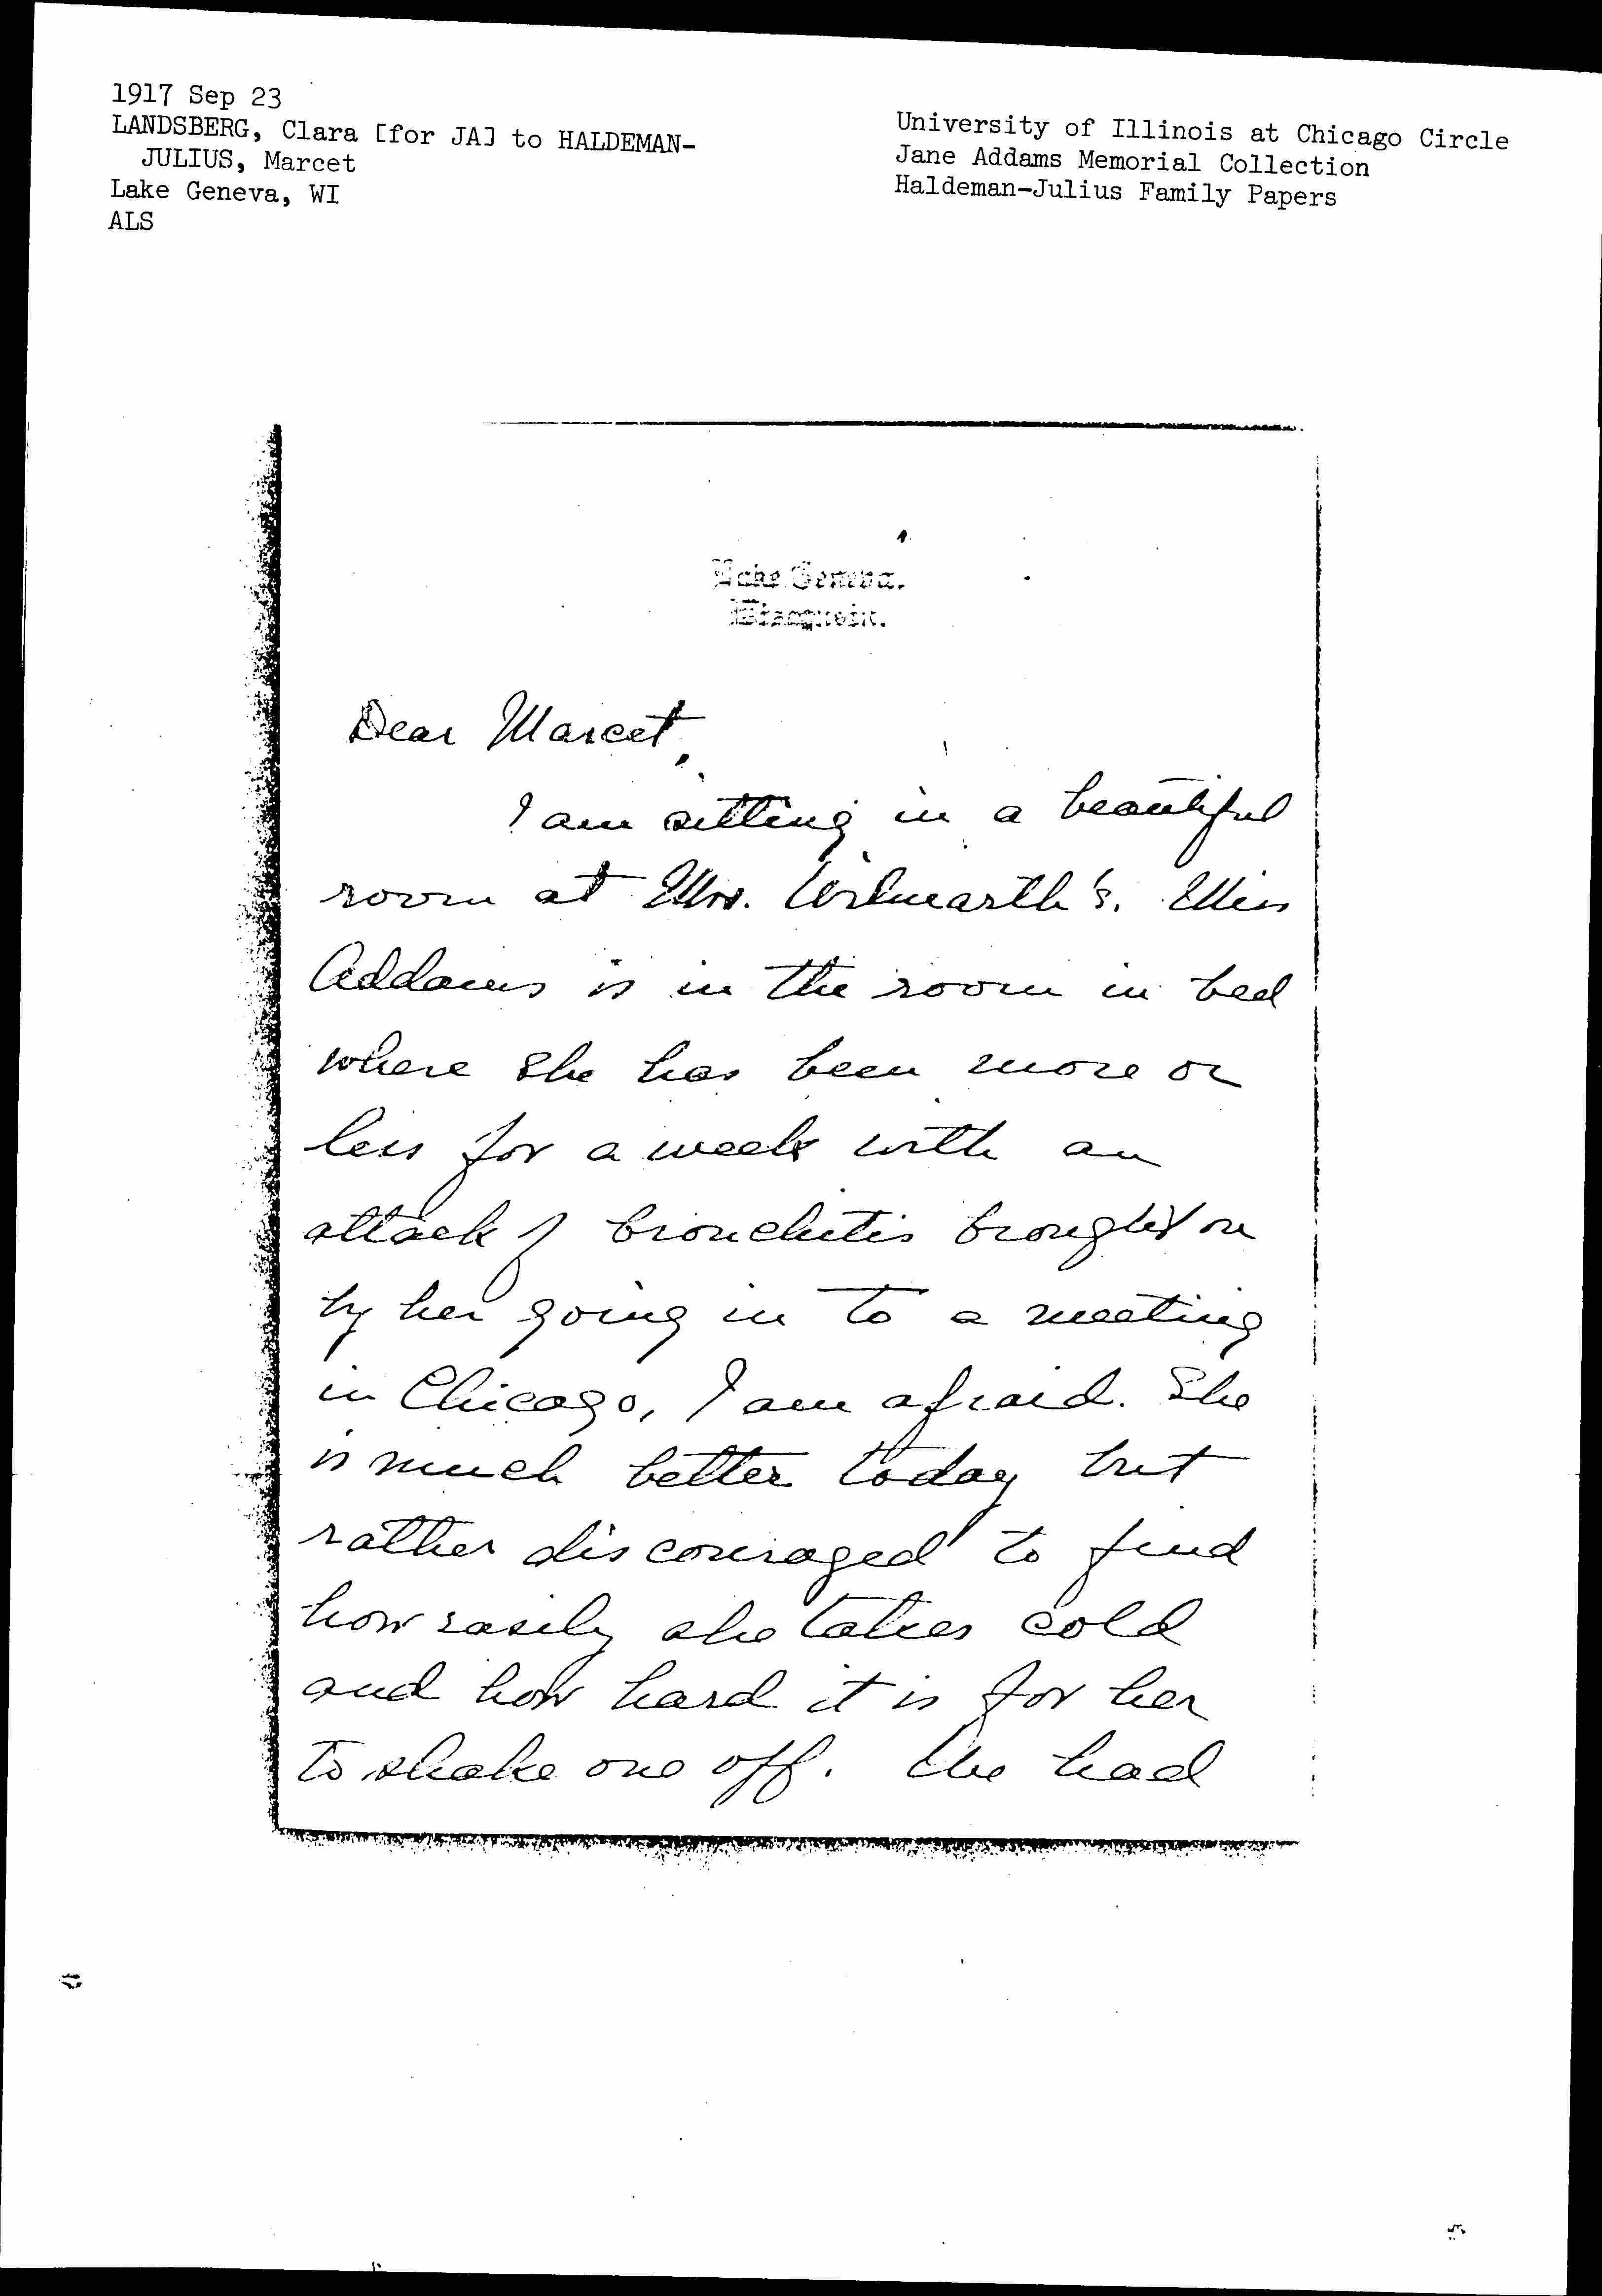 1917 Sep 23
LANDSBERG, Clara [for JA] to HALDEMAN-
JULIUS, Marcet
Lake Geneva, WI
ALS
University of Illinois at Chicago Circle
Jane Addams Memorial Collection
Haldeman-Julius Family Papers
Lake Geneva.
Wisconsin.
Dear Marcet,
I am sitting in a beautiful
room at Mrs. Wilmarth's. Miss
Addams is in the room in bed
where she has been more or
less for a week with an
attack of bronchitis brought on
by her going in to a meeting
in Chicago, I am afraid. She
is much better today but
rather discouraged to find
how easily she takes cold
and how hard it is for her
to shake one off. She had